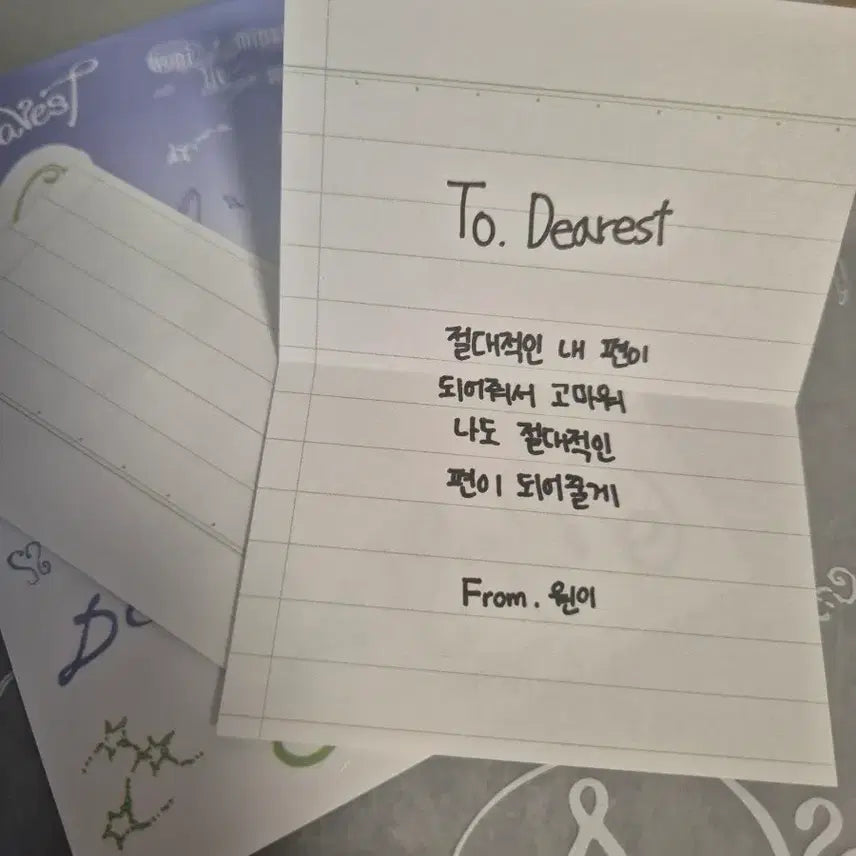 To. Dearest
절대적인 내 편이
되어줘서 고마워
나도 절대적인
편이 되어줄게
From. 원이